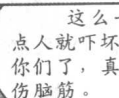 这么一
点人就吓坏
你们了，真
伤脑筋。